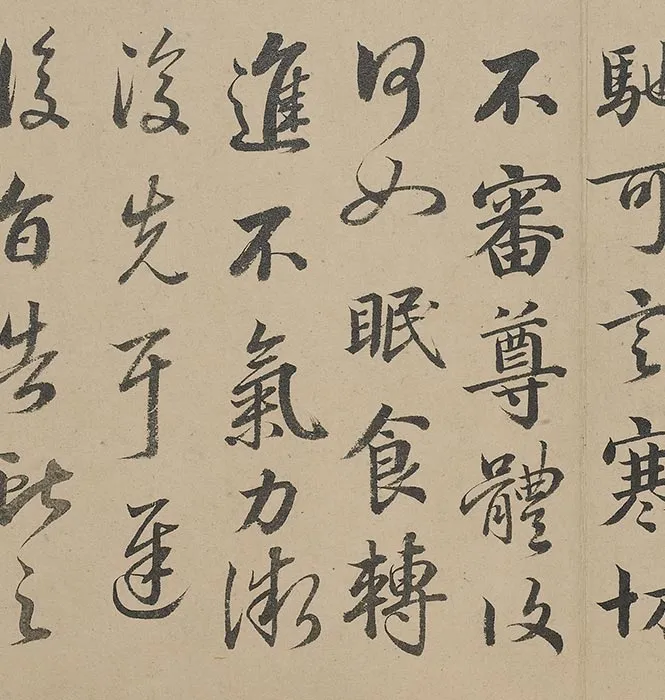 馳可言寒切
不審尊體復
何如眠食轉
進不氣力漸
復先耳遲
復旨告之